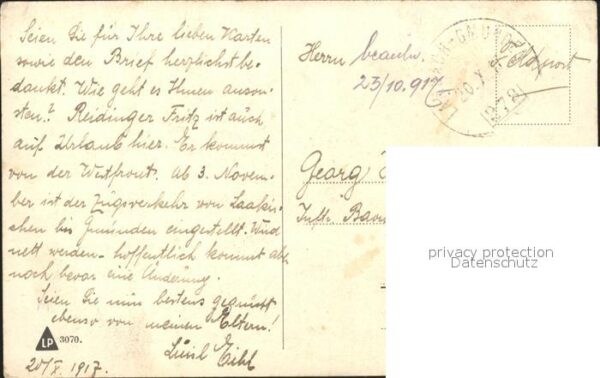 Seien Sie für Ihre lieben Karten
sowie den Brief herzlichst be-
dankt. Wie geht es Ihnen anson-
sten? Reidinger Fritz ist auch
auf Urlaub hier. Er kommt
von der Westfront. Ab 3. Novem-
ber ist der Zugsverkehr von Laakir-
chen bis Gmunden eingestellt. Wird
nett werden - hoffentlich kommt aber
noch bevor eine Änderung.
Seien Sie nun bestens gegrüsst
ebenso von meinen Eltern!
Liesl Eibl
LP 3070.
20/X. 1917.
Herrn
23/10.917
Feldpost
Georg
Inft. Baon
privacy protection
Datenschutz